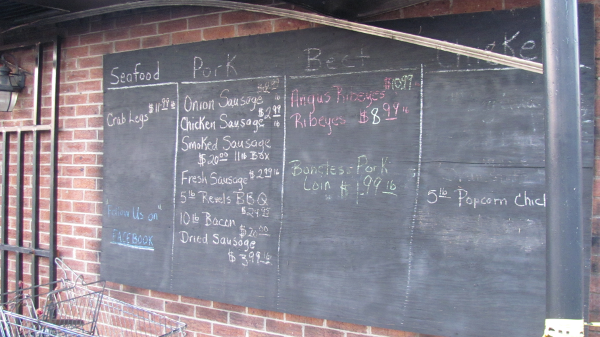 Seafood
Crab Legs $11.99 lb
Follow Us on
FACEBOOK
Pork
Onion Sausage
Chicken Sausage $2.99 lb
Smoked Sausage
$20.00 11 lb Box
Fresh Sausage $2.99 lb
5 lb Revels BBQ
$24.95
10 lb Bacon
$20.00
Dried Sausage
$3.99 lb
Beef
$10.99
Angus Ribeyes
Ribeyes $8.99 lb
Boneless Pork
Loin $1.99 lb
5 lb Popcorn Chic